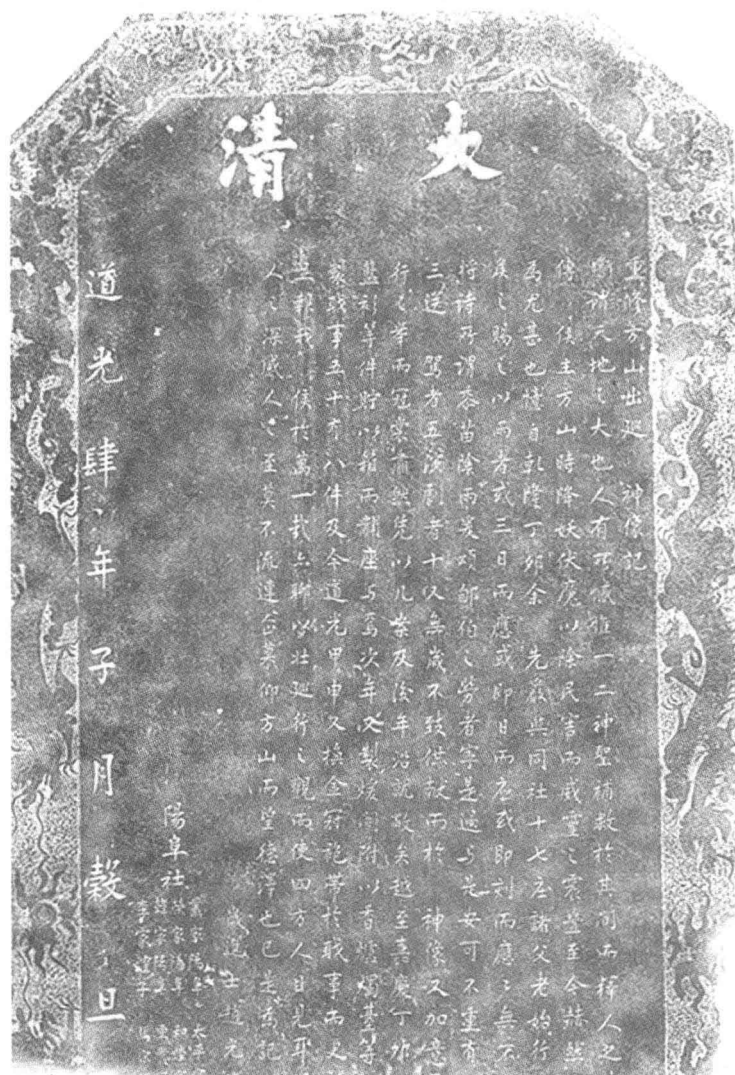 大清
重修方山出廵　神像記
嘗謂天地之大也人有所憾惟一二神聖補救於其間而擇人之
傳　侯主方山時降妖伏魔以除民害而威靈之震疊至今赫然
為尤甚也憶自乾隆丁卯余　先嚴與同社十七庄諸父老始行
侯之賜之以雨者或三日而應或即日而應或即刻而應之無不
將詩所謂黍苗陰雨爰頌郇伯之勞者寧是過與是安可不重有
三送　駕者五演劇者十又無歲不致供獻而於　神像又加意
行之舉而冠裳 凭以几案及後年沿 敬矣越至嘉慶丁卯
藍衫等件貯以箱而 座与焉次年又製煖閣附以香爐燭臺等
製戎事五十有八件及今道光甲申又換金冠袍帶於戎事而又
報我　侯於萬一哉亦聊以壯廵行之觀而使四方人目見耳
人之深感人之至莫不流連 慕仰方山而望德澤也已是為記
歲進士趙光
陽阜社
太平
道光肆年子月穀旦